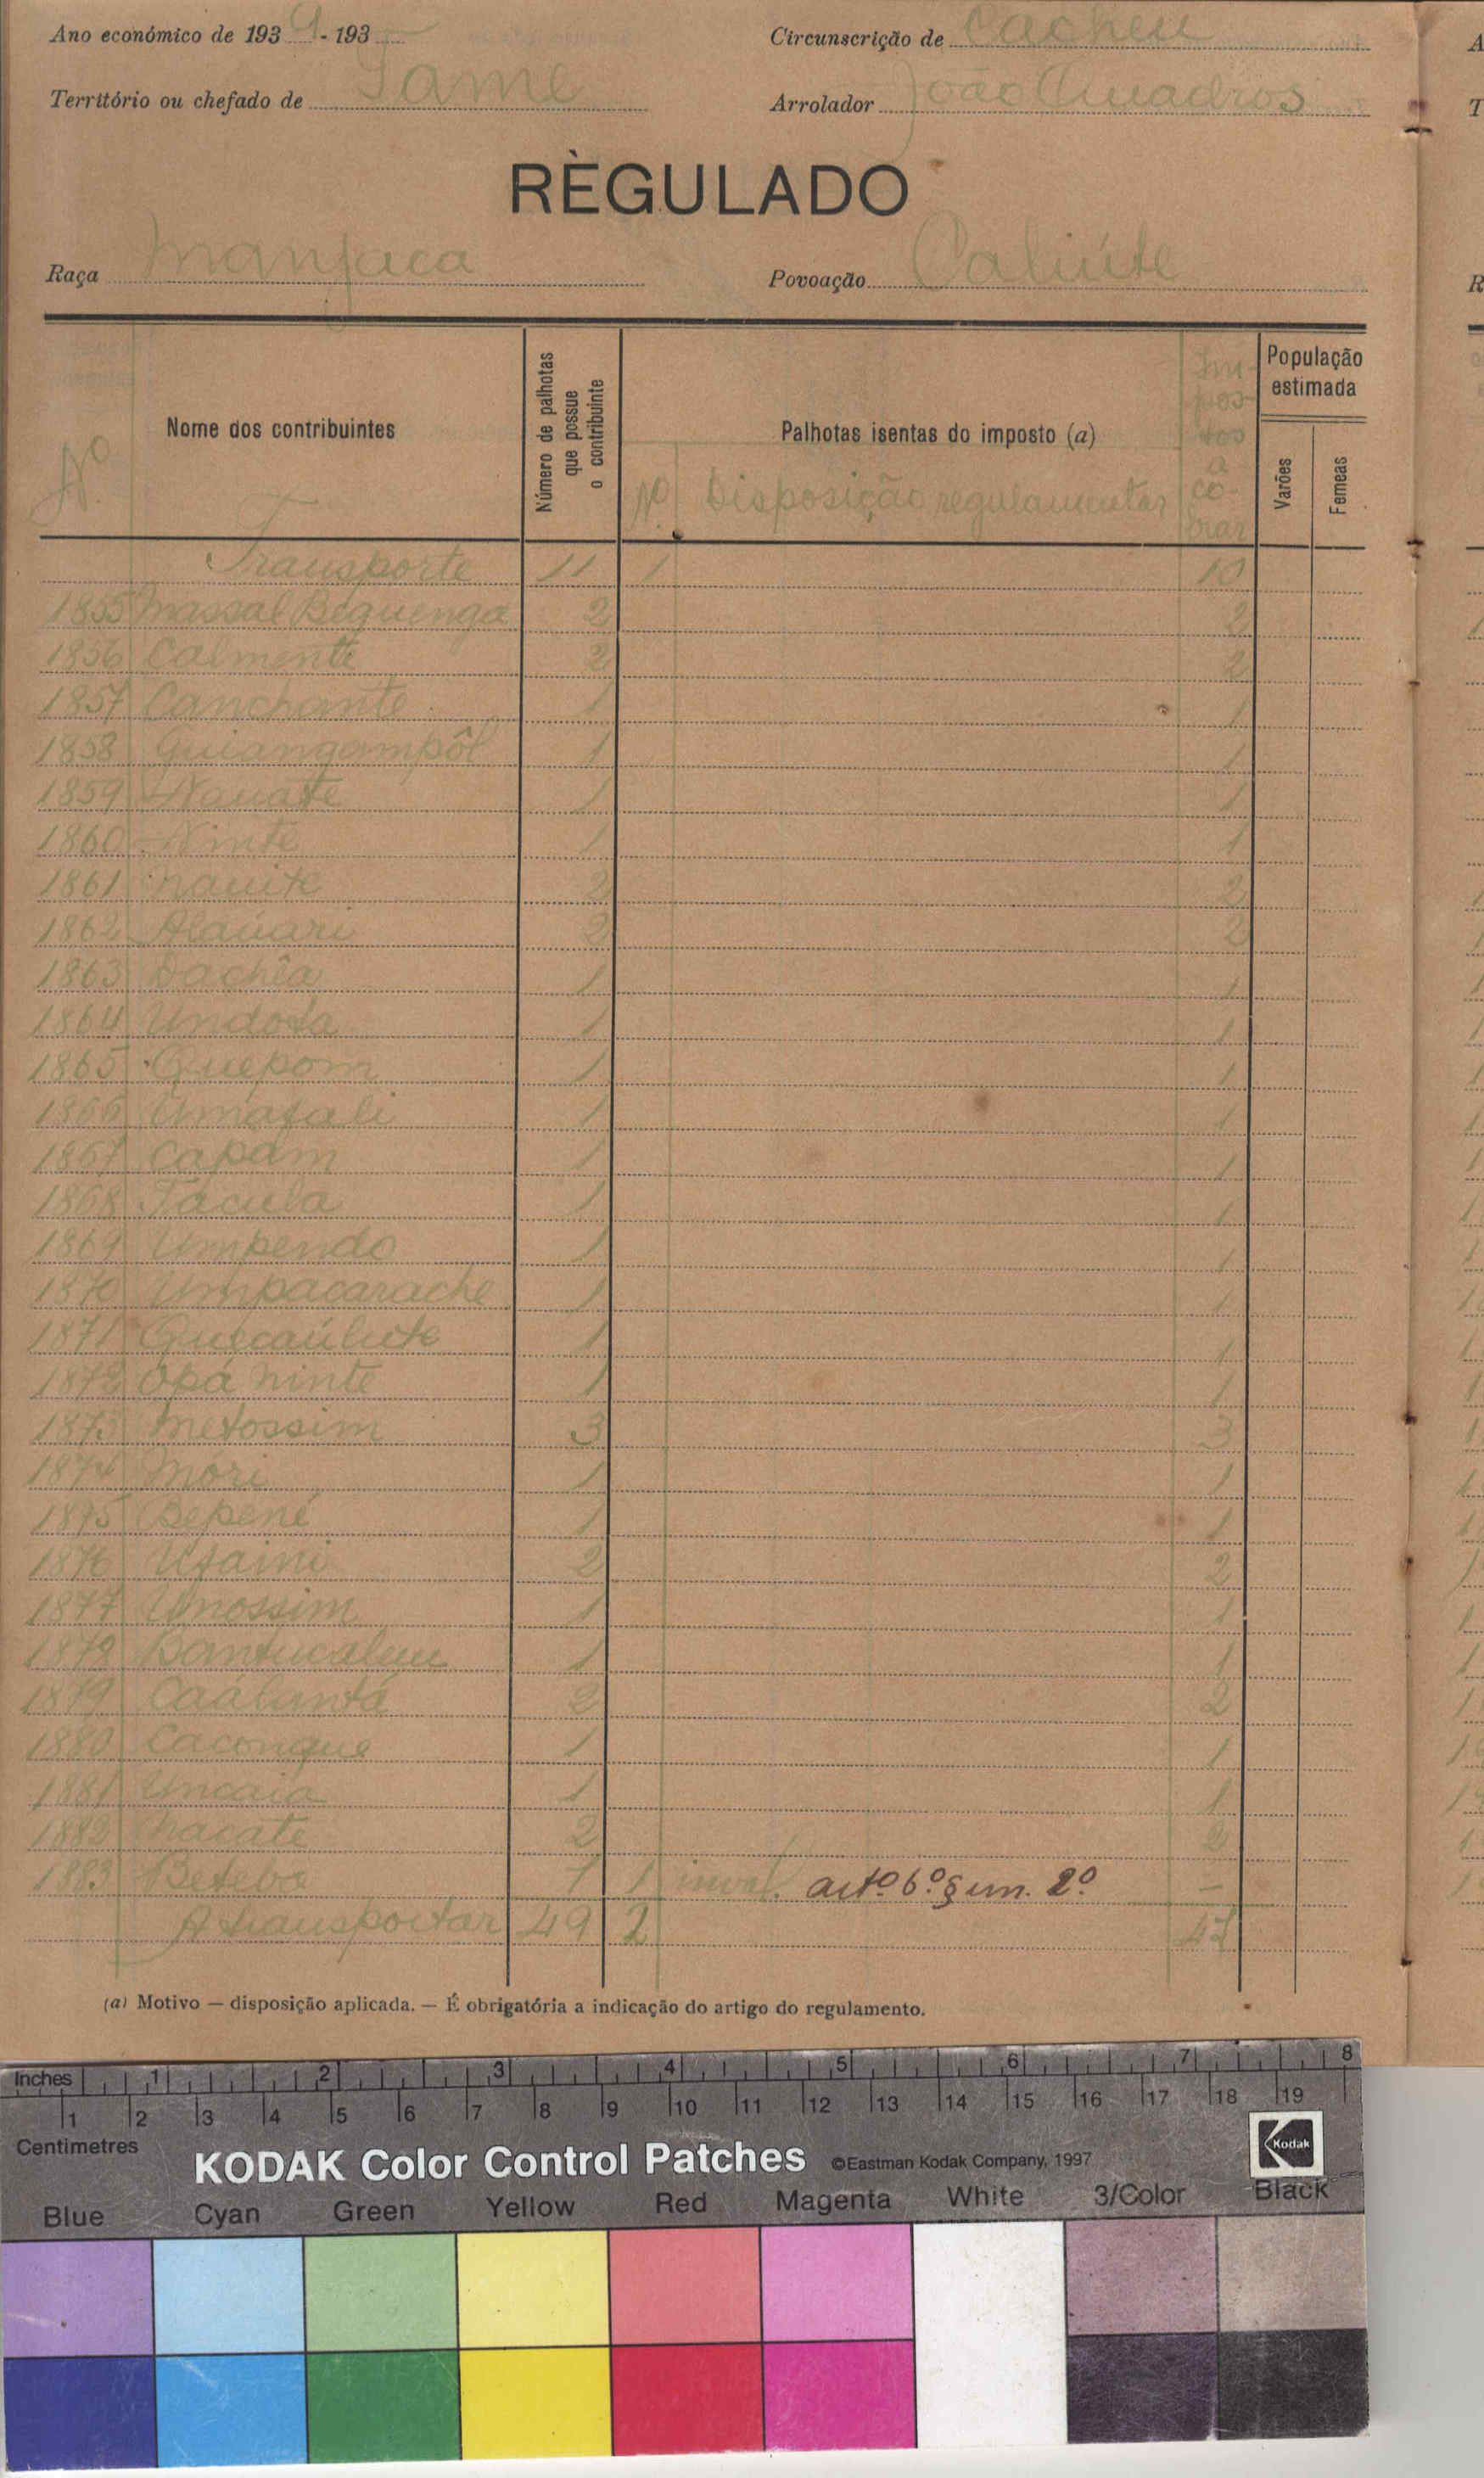 Ano económico de 1939 - 193
Circunscrição de Cacheu
Território ou chefado de Pame
Arrolador João Quadros
RÈGULADO
Raça Manjaca
Povoação
Nº
Nome dos contribuintes
Número de palhotas que possue o contribuinte
Palhotas isentas do imposto (a)
Nº Disposição regulamentar
Impostos a cobrar
População estimada
Varões
Femeas
Transporte 11 1 10
1855 Massal Bequenga 2 2
1856 Calmente 2 2
1857 Canchante 1 1
1858 Quiangampôl 1 1
1859 1 1
1860 Ninte 1 1
1861 Nauite 2 2
1862 Alauari 2 2
1863 Dachêa 1 1
1864 Undota 1 1
1865 Quepom 1 1
1866 1 1
1867 Capam 1 1
1868 Tacula 1 1
1869 Umpendo 1 1
1870 Umpacarache 1 1
1871 1 1
1872 Opá Ninte 1 1
1873 Metossim 3 3
1874 Móri 1 1
1875 Bepené 1 1
1876 2 2
1877 Unossim 1 1
1878 1 1
1879 2 2
1880 Caconque 1 1
1881 Uncaia 1 1
1882 Nacate 2 2
1883 Beteba 1 1 inval. artº 6º § um. 2º –
A transportar 49 2 47
(a) Motivo — disposição aplicada. — É obrigatória a indicação do artigo do regulamento.
Inches 1 2 3 4 5 6 7 8
1 2 3 4 5 6 7 8 9 10 11 12 13 14 15 16 17 18 19
Centimetres
KODAK Color Control Patches ©Eastman Kodak Company, 1997 Kodak
Blue Cyan Green Yellow Red Magenta White 3/Color Black